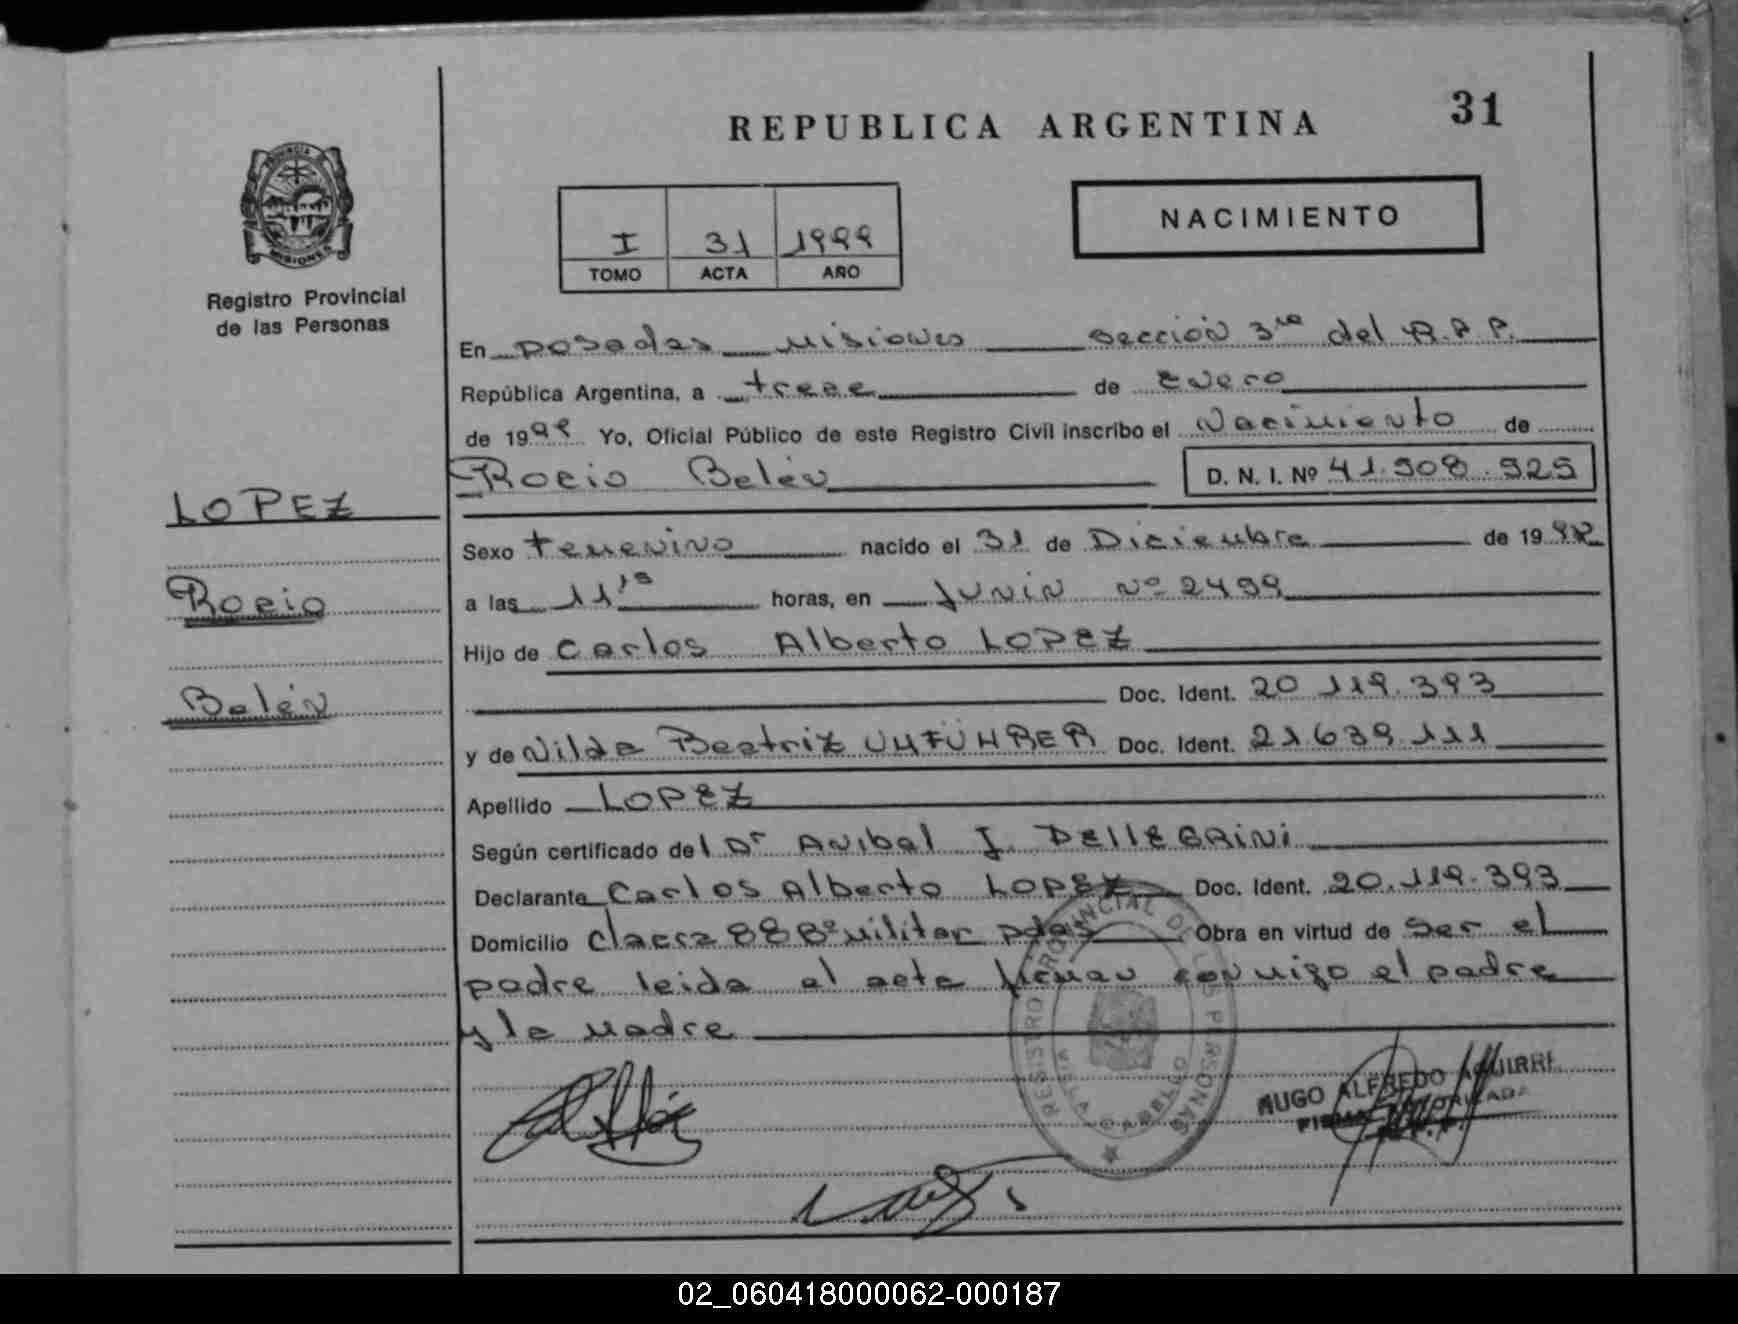 31
REPUBLICA ARGENTINA
PROVINCIA DE MISIONES
Registro Provincial
de las Personas
NACIMIENTO
I 31 1999
TOMO ACTA AÑO
En posadas Misiones sección 3ra del R.P.P.
República Argentina, a trece de Enero
de 1999 Yo, Oficial Público de este Registro Civil inscribo el Nacimiento de
Rocio Belén D. N. I. Nº 41.908.925
LOPEZ
Rocio
Belén
Sexo femenino nacido el 31 de Diciembre de 1998
a las 11 15 horas, en Junín Nº 2499
Hijo de Carlos Alberto LOPEZ
Doc. Ident. 20.119.393
y de Nilda Beatriz Doc. Ident. 21.639.111
Apellido LOPEZ
Según certificado del Dr Anibal J. PELLEGRINI
Declarante Carlos Alberto LOPEZ Doc. Ident. 20.119.393
Domicilio 888 Bº Militar pdas Obra en virtud de ser el
padre leida el acta firman conmigo el padre
y la madre
REGISTRO PROVINCIAL DE LAS PERSONAS
VILLA CABELLO
HUGO ALFREDO AGUIRRE
FIRMA AUTORIZADA
02_060418000062-000187